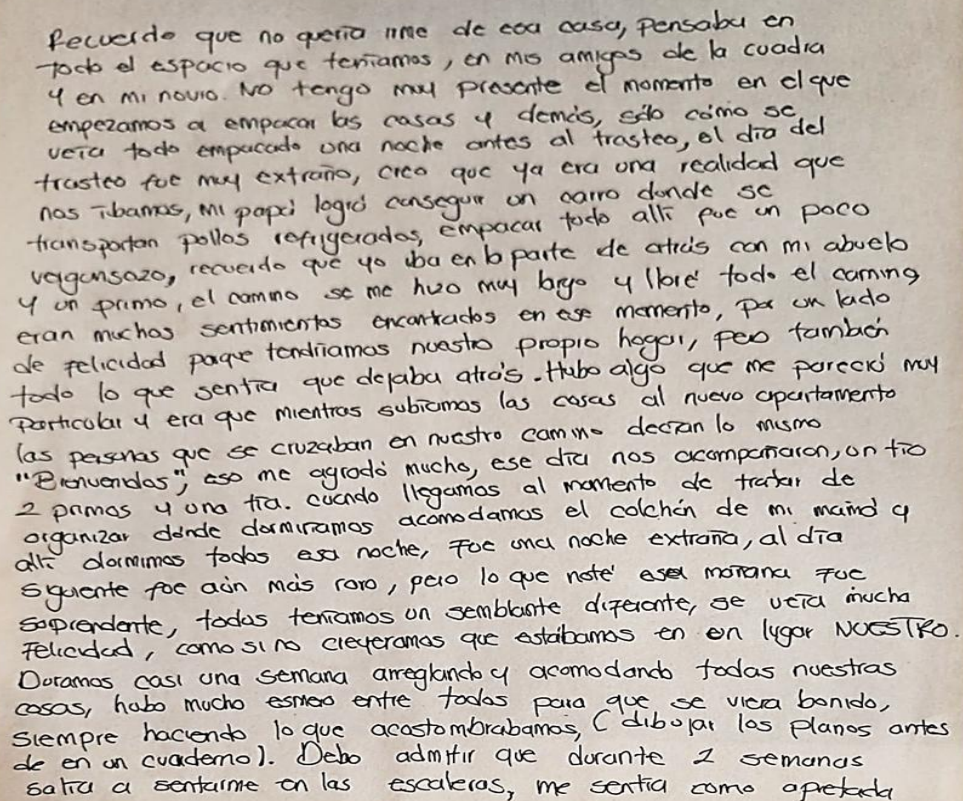 Recuerdo que no quería irme de esa casa, pensaba en
todo el espacio que teníamos, en mis amigas de la cuadra
y en mi novio. No tengo muy presente el momento en el que
empezamos a empacar las cosas y demás, sólo cómo se
veía todo empacado una noche antes al trasteo, el día del
trasteo fue muy extraño, creo que ya era una realidad que
nos íbamos, mi papá logró conseguir un carro donde se
transportan pollos refrigerados, empacar todo allí fue un poco
vergonsozo, recuerdo que yo iba en la parte de atrás con mi abuelo
y un primo, el camino se me hizo muy largo y lloré todo el camino,
eran muchos sentimientos encontrados en ese momento, por un lado
de felicidad porque tendríamos nuestro propio hogar, pero también
todo lo que sentía que dejaba atrás. Hubo algo que me pareció muy
Particular y era que mientras subíamos las cosas al nuevo apartamento
las personas que se cruzaban en nuestro camino decían lo mismo
"Bienvenidos", eso me agradó mucho, ese día nos acompañaron, un tío
2 primos y una tía. cuando llegamos al momento de tratar de
organizar dónde dormiríamos acomodamos el colchón de mi mamá y
allí dormimos todos esa noche, Fue una noche extraña, al día
siguiente fue aún más raro, pero lo que noté esa mañana Fue
sorprendente, todos teníamos un semblante diferente, se veía mucha
Felicidad, como si no creyeramos que estábamos en un lugar NUESTRO.
Duramos casi una semana arreglando y acomodando todas nuestras
cosas, hubo mucho esmero entre todos para que se viera bonido,
siempre haciendo lo que acostumbrabamos, (dibujar los planos antes
de en un cuaderno). Debo admitir que durante 2 semanas
salía a sentarme en las escaleras, me sentía como apretada